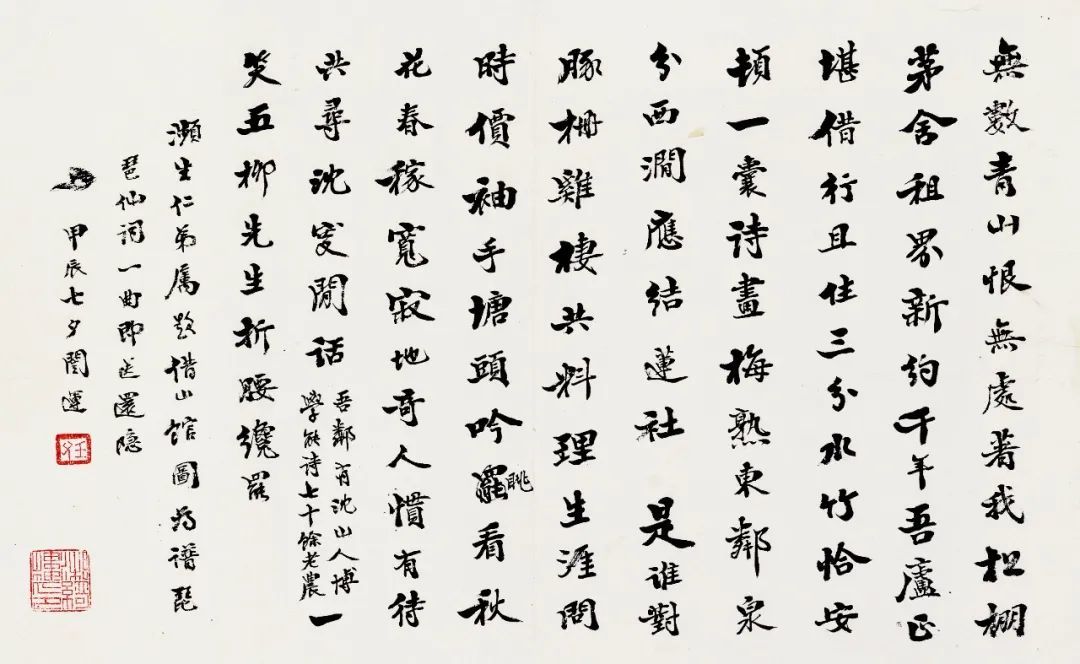 無數青山恨無處著我松棚
茅舍租界新約千年吾廬正
堪借行且住三分水竹恰安
頓一囊詩畫梅熟東鄰泉
分西澗應結蓮社 是誰對
豚柵雞棲共料理生涯問
時價袖手塘頭吟罷眺看秋
花春稼寬寂地奇人慣有待
共尋沈叟閒話
吾鄰有沈山人博
學能詩七十餘老農
一
笑五柳先生折腰纔罷
瀕生仁弟屬題借山館圖為譜琵
琶仙詞一曲即送還隱
甲辰七夕闓運